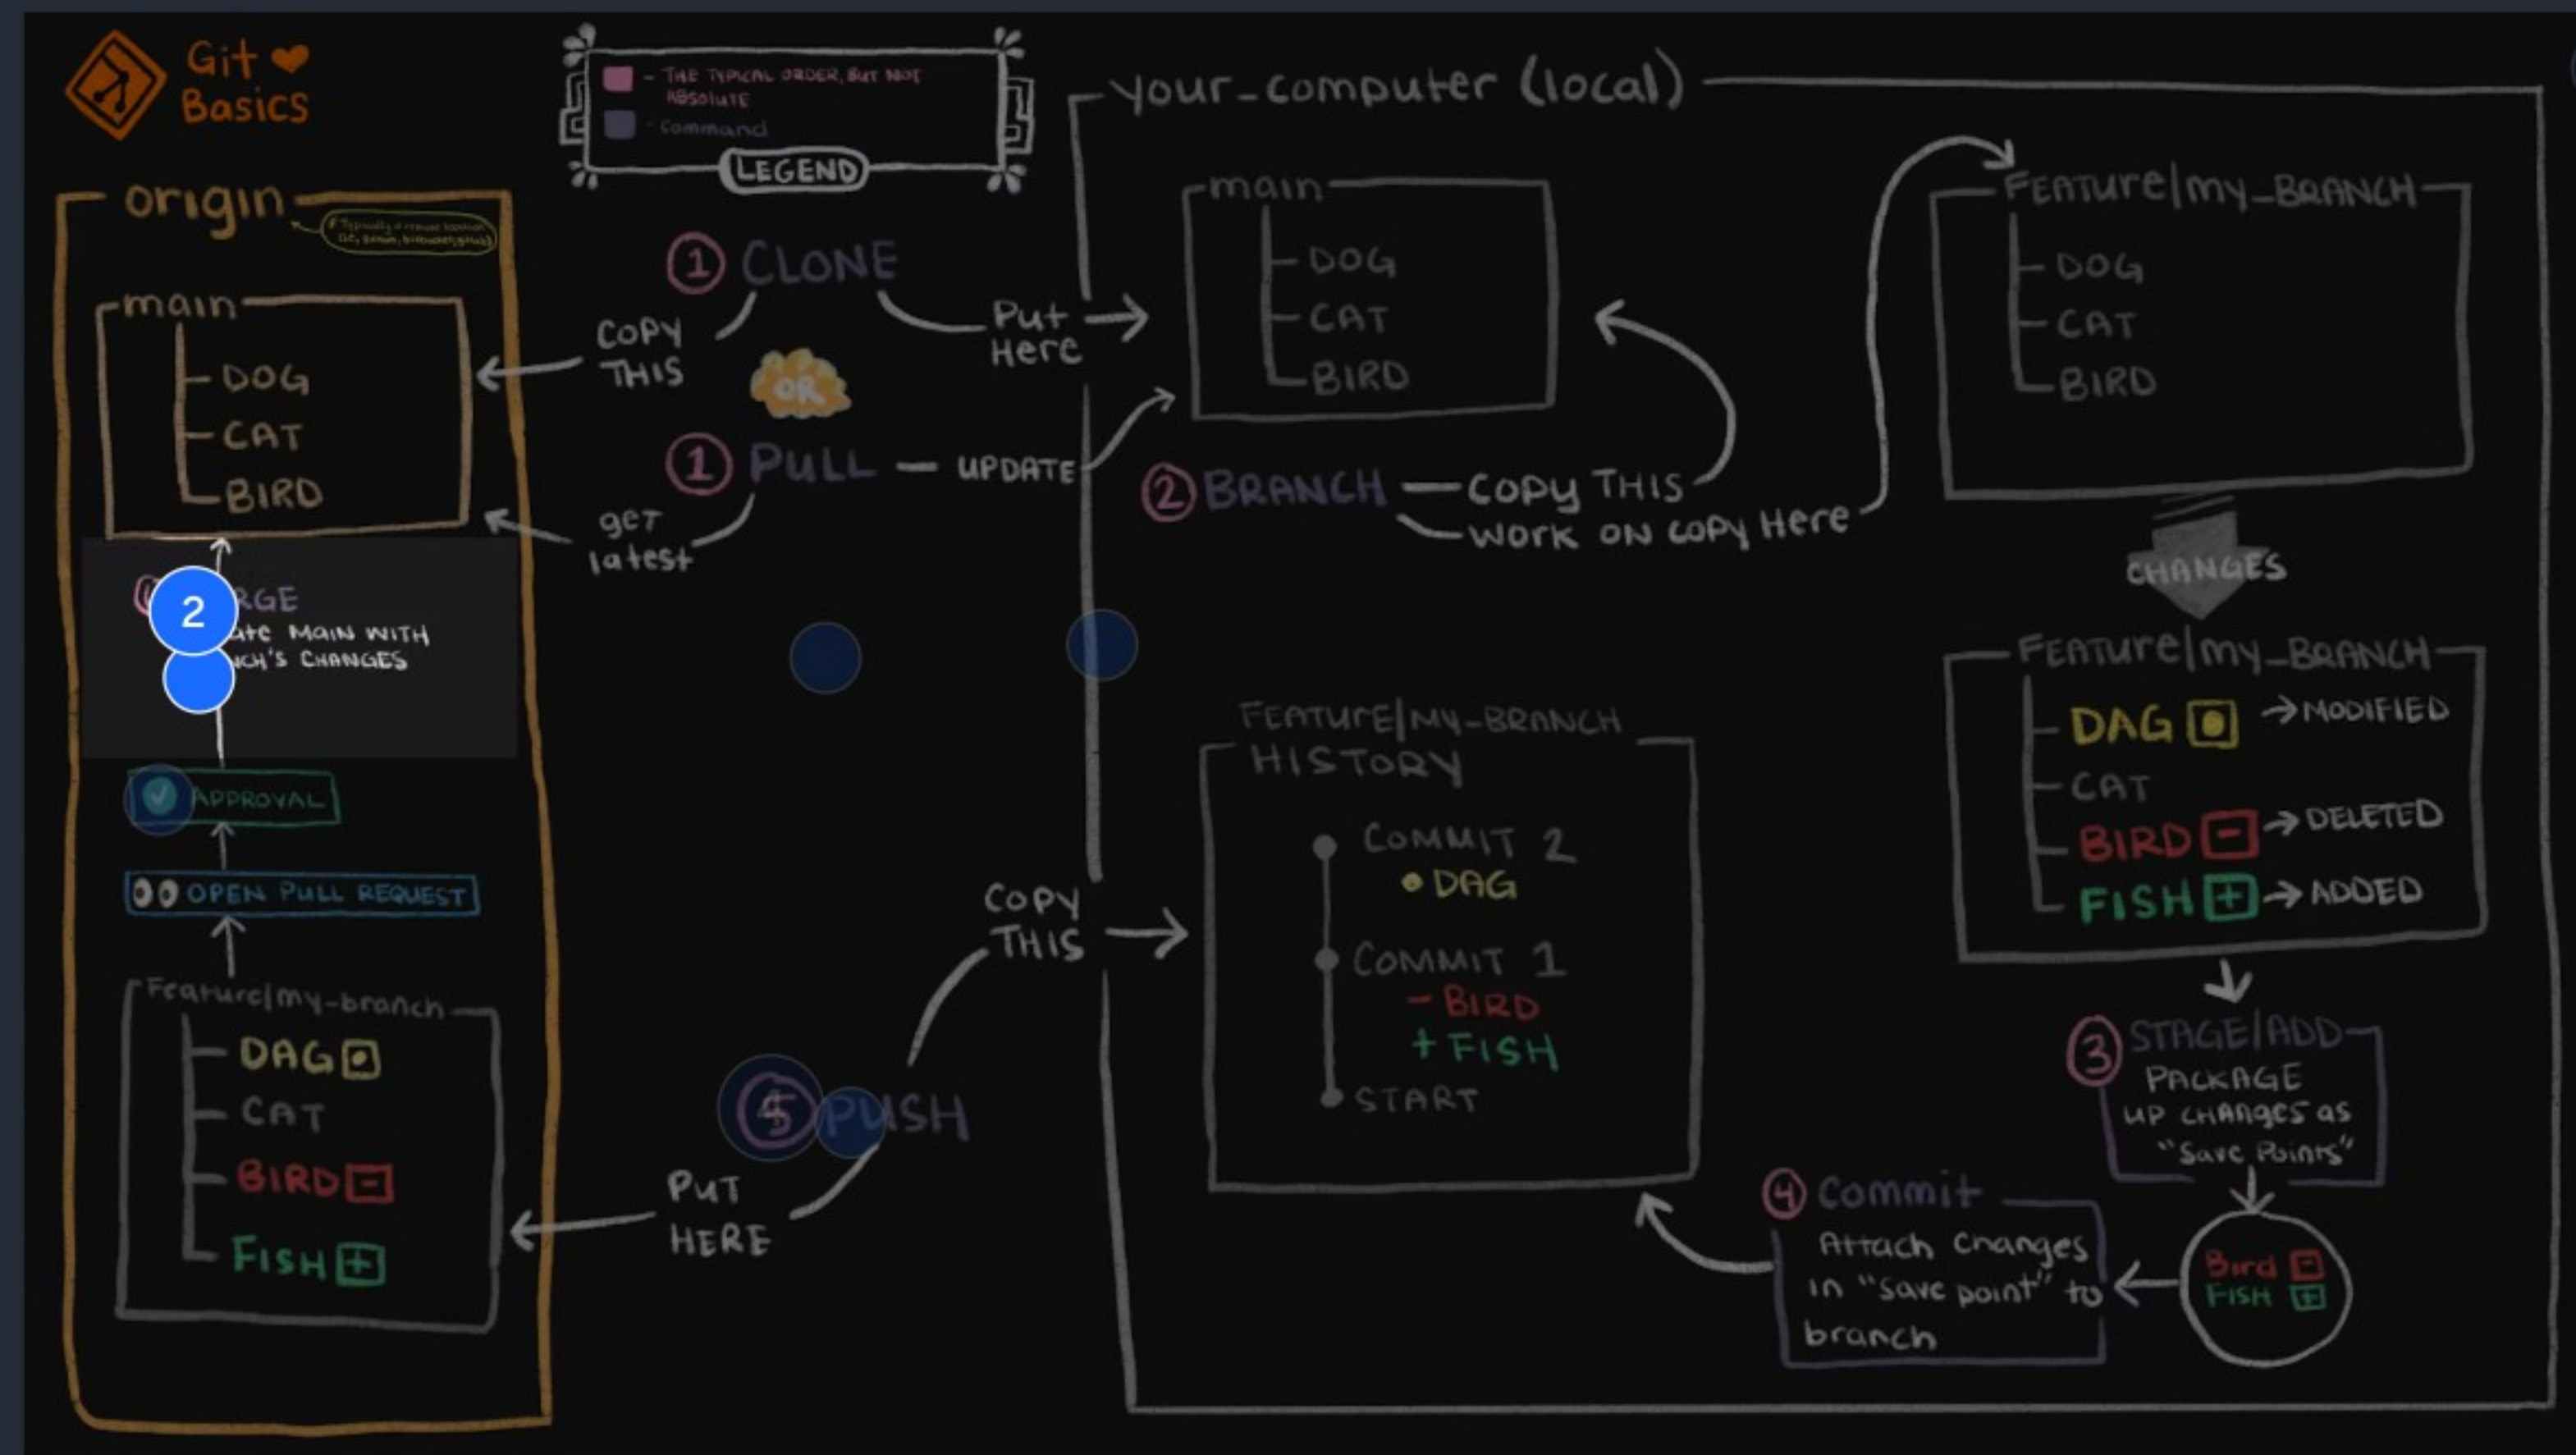 Git
Basics
- THE TYPICAL ORDER, BUT NOT
ABSOLUTE
- Command
LEGEND
origin
main
DOG
CAT
BIRD
1 CLONE
COPY
THIS
Put
Here
OR
1 PULL - UPDATE
get
latest
2
RGE
ate MAIN WITH
NCH'S CHANGES
APPROVAL
OPEN PULL REQUEST
Feature/my-branch
DAG
CAT
BIRD -
FISH +
PUSH
COPY
THIS
PUT
HERE
your_computer (local)
main
DOG
CAT
BIRD
2 BRANCH - COPY THIS
WORK ON COPY Here
FEATure/my_BRANCH
DOG
CAT
BIRD
CHANGES
FEATure/my_BRANCH
DAG → MODIFIED
CAT
BIRD - → DELETED
FISH + → ADDED
3 STAGE/ADD
PACKAGE
UP CHANGES as
"Save Points"
Bird -
FISH +
4 Commit
Attach Changes
in "save point" to
branch
FEATURE/MY-BRANCH
HISTORY
COMMIT 2
• DAG
COMMIT 1
- BIRD
+ FISH
START